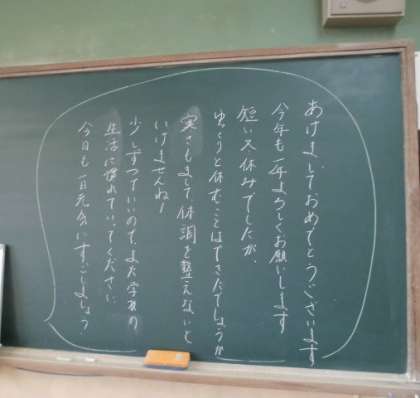 あけましておめでとうございます
今年も一年よろしくお願いします
短い冬休みでしたが、
ゆっくりと休むことはできたでしょうか
寒さもまして、体調を整えないと
いけませんね!
少しずつでいいので、また学校の
生活に慣れていってください
今日も一日元気にすごしましょう